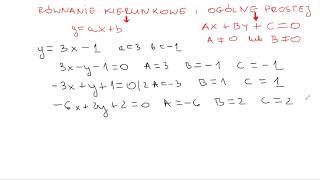 RÓWNANIE KIERUNKOWE I OGÓLNE PROSTEJ
y=ax+b
Ax+By+C=0
A≠0 lub B≠0
y=3x-1 a=3 b=-1
3x-y-1=0 A=3 B=-1 C=-1
-3x+y+1=0/2 A=-3 B=1 C=1
-6x+2y+2=0 A=-6 B=2 C=2